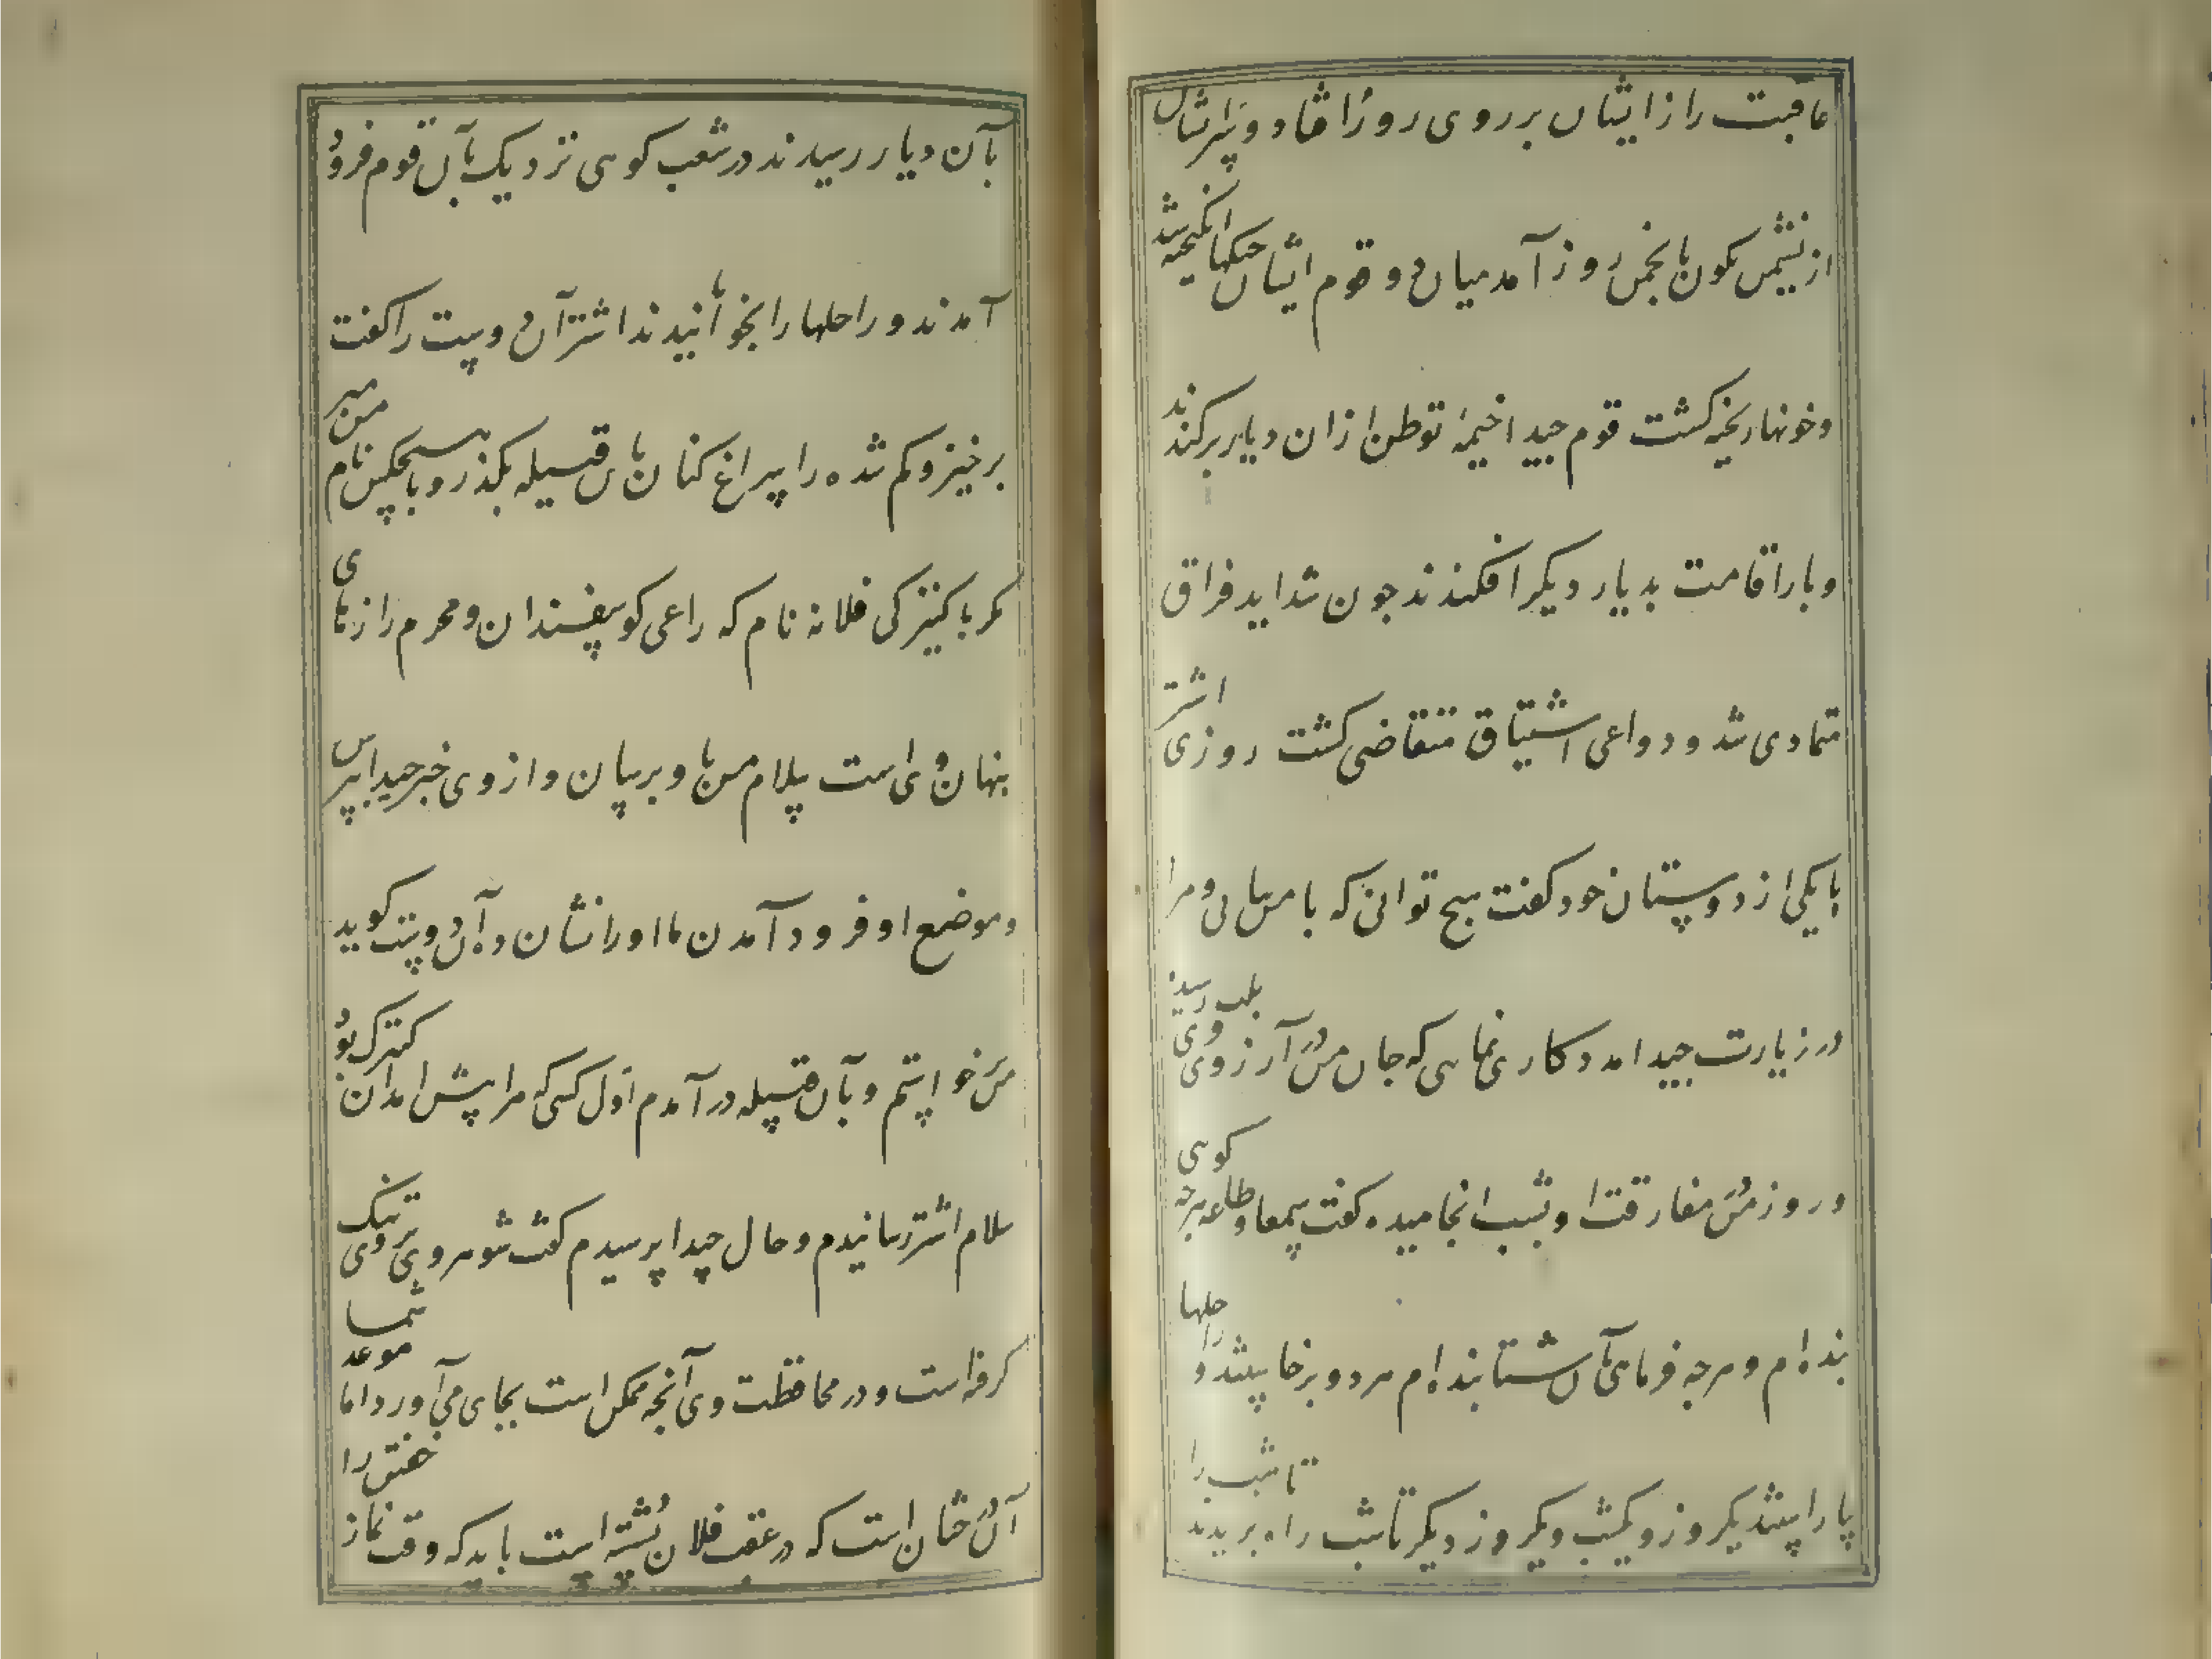 عاقبت راز ایشان بر روی روز افتاد و سر ایشان
از نشیمن کمون بانجمن روز آمد میان دو قوم ایشان جنکها انکیخته شد
و خونها ریخته کشت قوم جیدا خیمهٔ توطن از ان دیار برکندند
و بار اقامت بدیار دیکر افکندند جون شداید فراق
متمادی شد و دواعی اشتیاق متقاضی کشت روزی اشتر
با یکی از دوستان خود کفت هیج توانی که با من بیایی و مرا
در زیارت جیدا مددکاری نمایی که جان من در آرزوی وی بلب رسید
و روز من در مفارقت او بشب انجامیده کفت سمعا و طاعة هرجه کویی
بنده ام و هرجه فرمایی بآن شتابنده ام هر دو برخاستند و راحلها
بیاراستند یکروز و یکشب و یکروز دیکر تا شب راه بریدند تا شب را
بآن دیار رسیدند در شعب کوهی نزدیک بآن قوم فرود
آمدند و راحلها را بخوابانیدند اشتر آن دوست را کفت
برخیز و کم شده را سراغ کنان باین قبیله بکذر و با هیجکس نام من مبر
مکر با کنیزکی فلانه نام که راعی کوسفندان و محرم رازهای
بنهان وی است سلام من باو برسان و از وی خبر جیدا ببرس
و موضع فرود آمدن ما او را نشان ده آن دوست کوید
من خواستم و بآن قبیله درآمدم اول کسی که مرا پیش امد ان کنیزک بود
سلام اشتر رسانیدم و حال جیدا پرسیدم کفت شوهر وی بر وی تنک
کرفته است و در محافظت وی آنجه ممکن است بجای می آورد اما موعد شما
آن درختان است که در عقب فلان پشته است باید که وقت نماز خفتن را